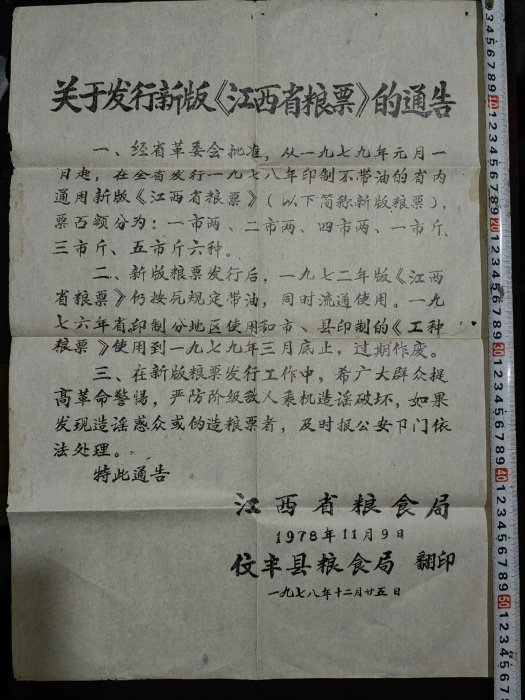 关于发行新版《江西省粮票》的通告
一、经省革委会批准，从一九七九年元月一
日起，在全省发行一九七八年印制不带油的省内
通用新版《江西省粮票》（以下简称新版粮票），
票面额分为：一市两、二市两、四市两、一市斤、
三市斤、五市斤六种。
二、新版粮票发行后，一九七二年版《江西
省粮票》仍按原规定带油，同时流通使用。一九
七六年省印制分地区使用和市、县印制的《工种
粮票》使用到一九七九年三月底止，过期作废。
三、在新版粮票发行工作中，希广大群众提
高革命警惕，严防阶级敌人乘机造谣破坏，如果
发现造谣惑众或伪造粮票者，及时报公安卩门依
法处理。
特此通告
江西省粮食局
1978年11月9日
伩丰县粮食局 翻印
一九七八年十二月廿五日